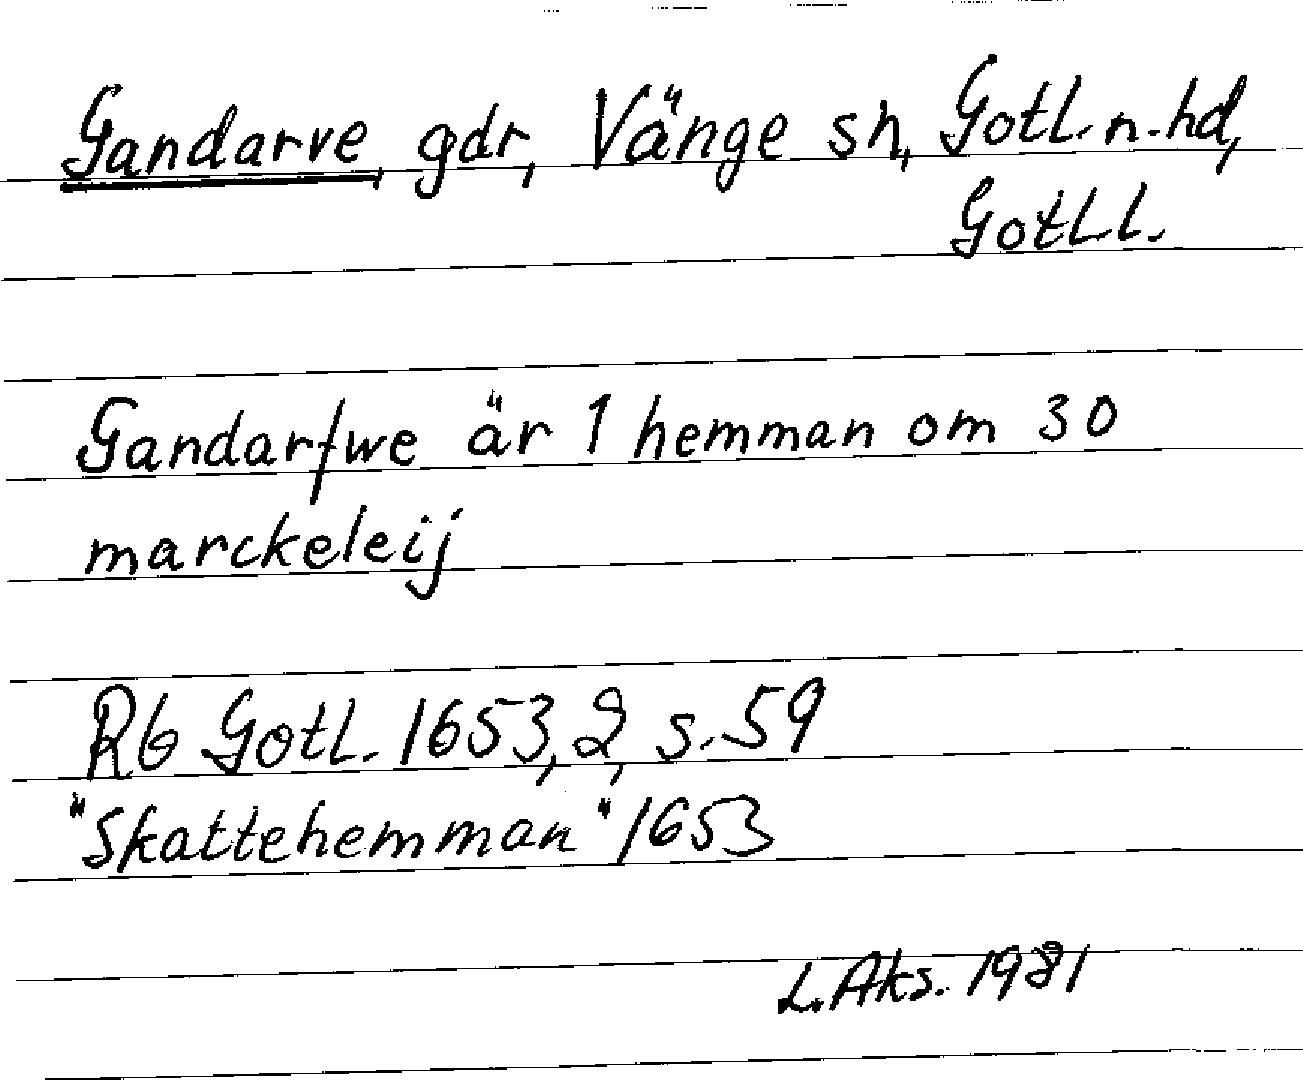 Gandarve, gdr, Vänge sn, Gotl. n. hd,
Gotl. l.
Gandarfwe är 1 hemman om 30
marckeleij
Rb Gotl. 1653, 2, s. 59
"Skattehemman" 1653
L. Aks. 1981